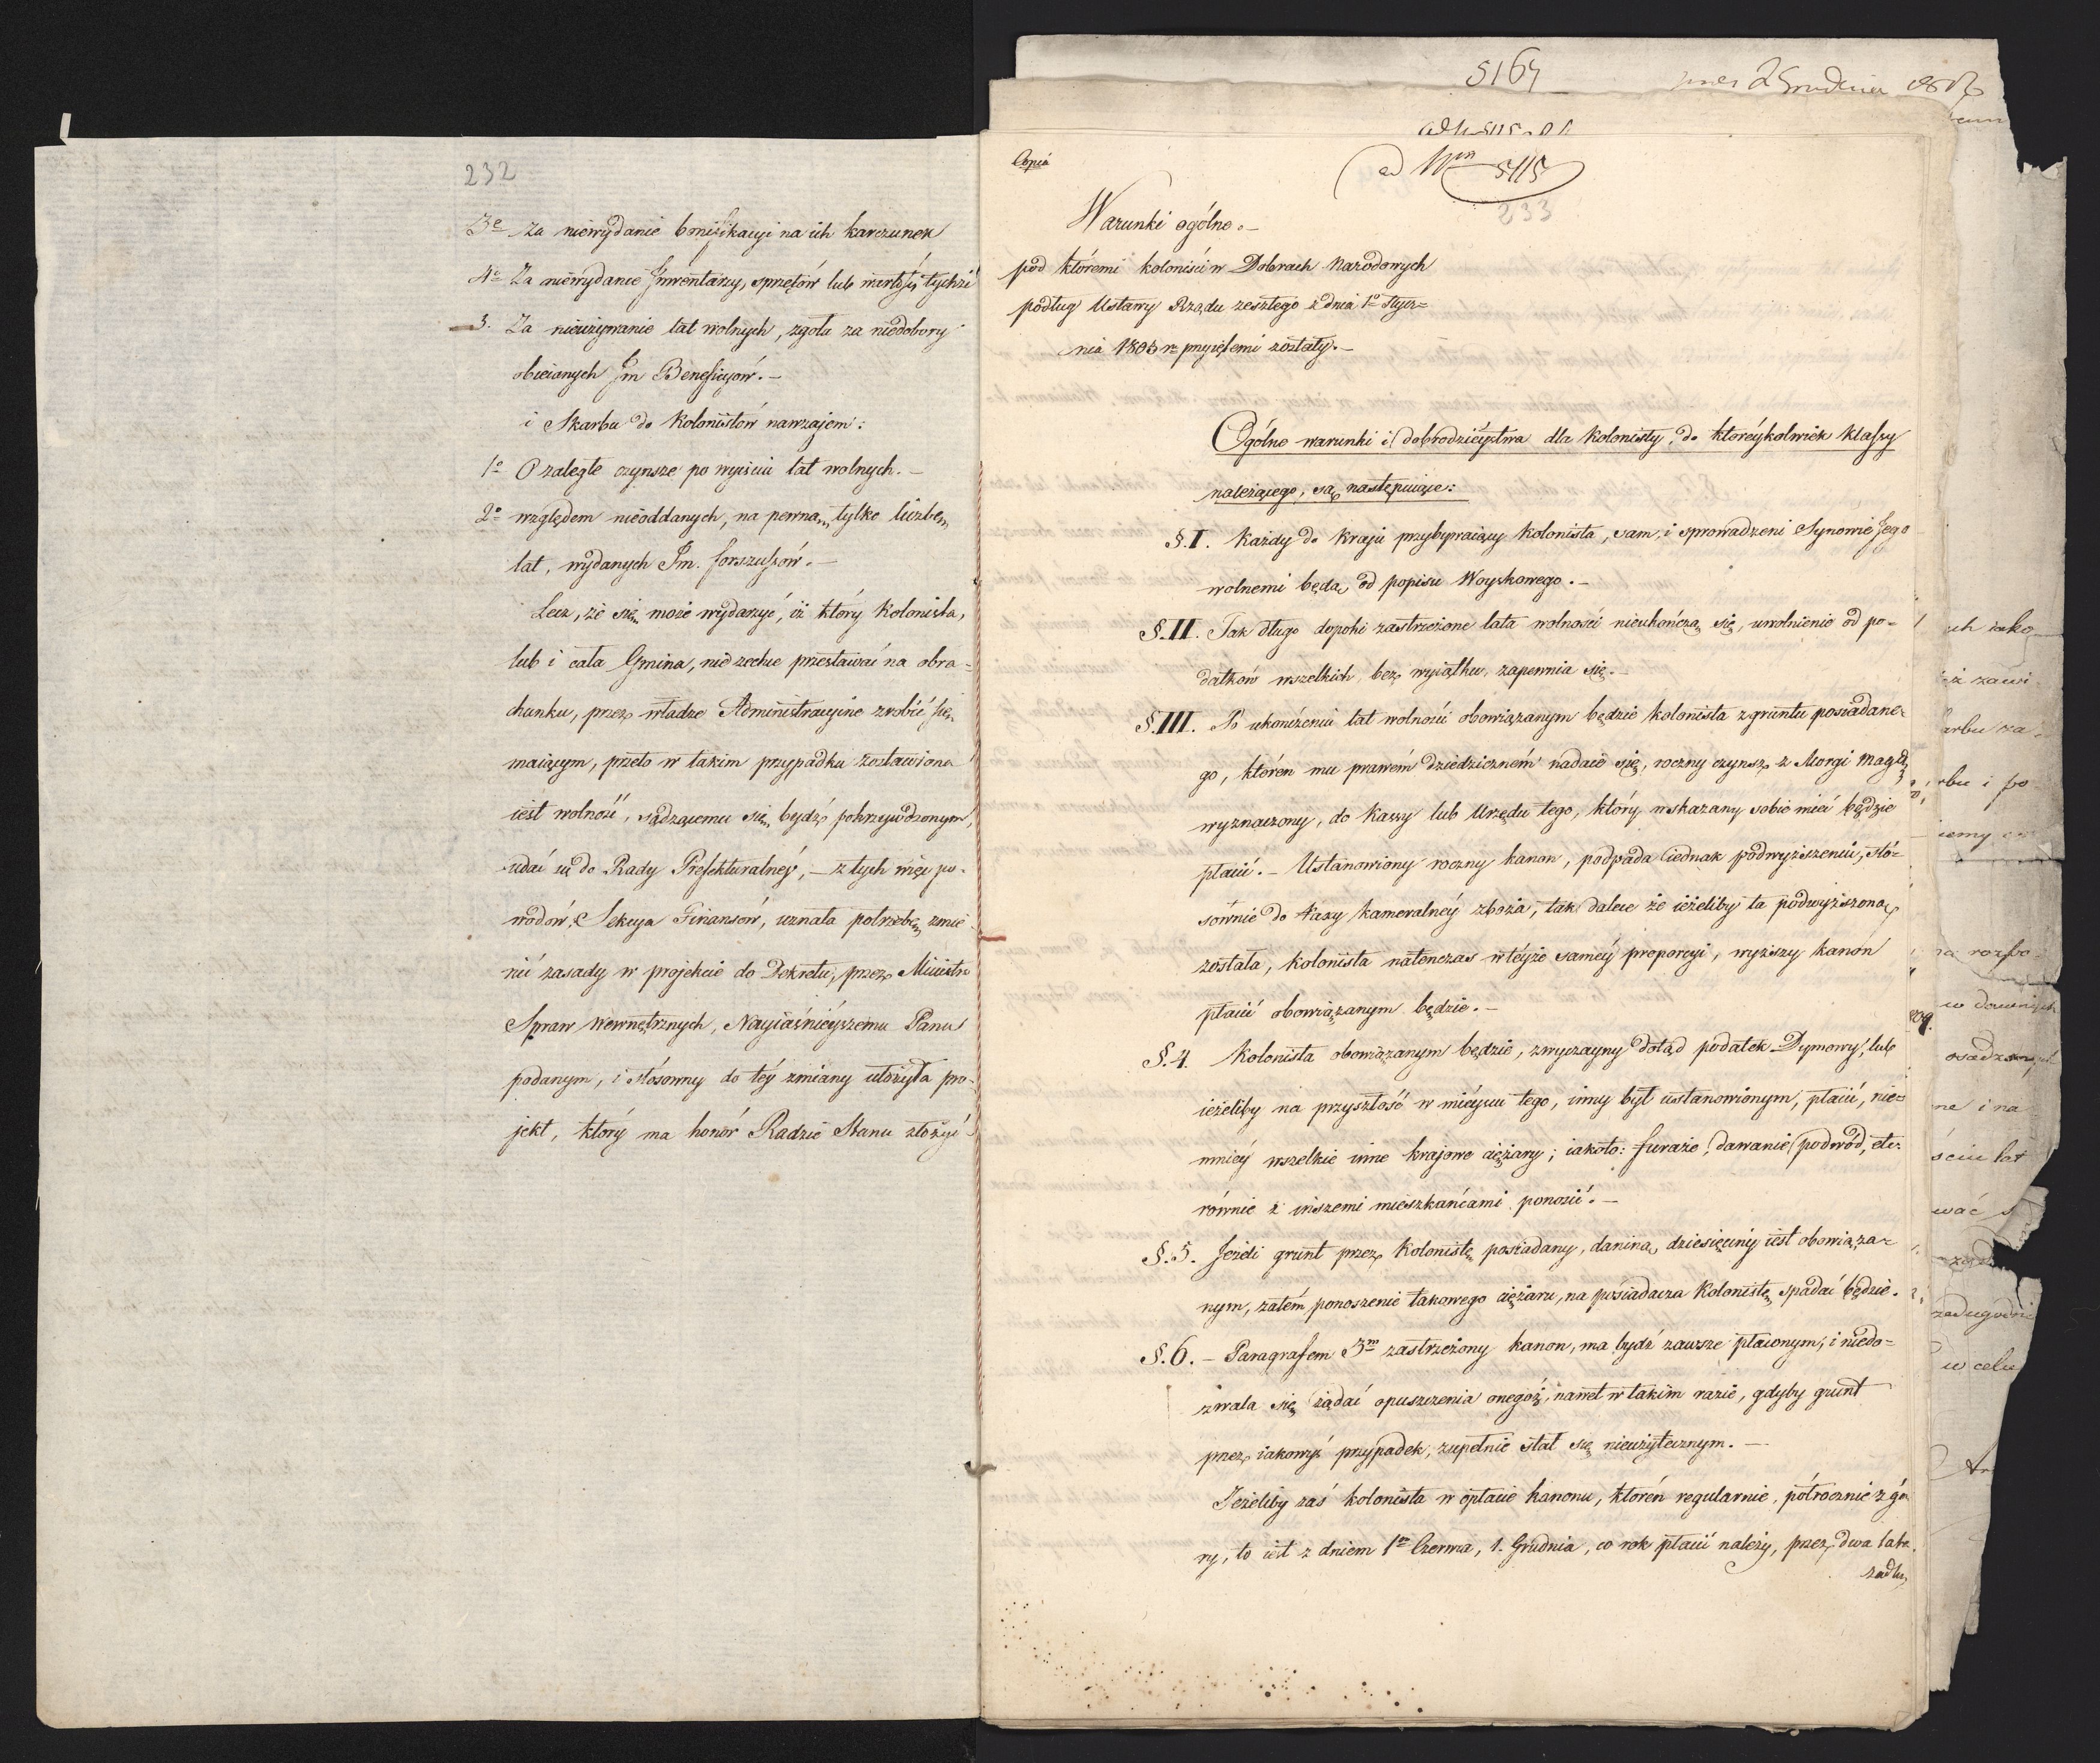 232
3e Za niewydanie bonifikacyi na ich karczunek
4e Za niewydanie Inwentarzy, sprzętów lub wartości tychże
5. Za nieużywanie lat wolnych, zgoła za niedobory
obiecianych Im Beneficyow. –
i Skarbu do Kolonistów nawzajem:
1o O zaległe czynsze po wyiściu lat wolnych. –
2o względem nieoddanych, na pewną tylko liczbę
lat, wydanych Im. forszussów. –
Lecz, że się może wydarzyć, iż który Kolonista,
lub i cała Gmina, niezechce przestawać na obra-
chunku, przez władze Administracyine zrobić się
maiącym, przeto w takim przypadku zostawiona
iest wolność, sądzącemu się bydź pokrzywdzonym,
udać się do Rady Prefekturalney, – z tych więc po-
wodów, Sekcya Finansów, uznała potrzebę zmie-
nić zasady w projekcie do Dekretu, przez Ministra
Spraw Wewnętrznych, Nayiaśnieyszemu Panu
podanym, i stósowny do téy zmiany ułożyła pro-
jekt, który ma honór Radzie Stanu złożyć –
5164
2 Grudnia
Copia
ad Nrm 5115
233
Warunki ogólne. –
pod któremi koloniści w Dobrach Narodowych
podług Ustawy Rządu zeszłego z dnia 1o Stycz=
nia 1805 r. przyiętemi zostały. –
Ogólne warunki i dobrodzieystwa dla Kolonisty, do któreykolwiek Klassy
należącego, są następuiące:
§. I. Każdy do Kraju przybywaiący Kolonista, sam, i sprowadzeni Synowie Jego
wolnemi będą od popisu Woyskowego. –
§. II. Tak długo dopóki zastrzeżone lata wolności nieukończą się, uwolnienie od po=
datków wszelkich, bez wyiątku, zapewnia się. –
§. III. Po ukończeniu lat wolności obowiązanym będzie kolonista z gruntu posiadane=
go, któren mu prawem dziedzicznem nadaie się, roczny czynsz z Morgi Magd.
wyznaczony, do Kassy lub Urzędu tego, który wskazany sobie mieć będzie
płacić. – Ustanowiony roczny kanon, podpada iednak podwyższeniu, stó=
sównie do taxy kameralney zboża, tak dalece że ieżeliby ta podwyższoną
została, Kolonista natenczas w téyże saméy proporcyi, wyższy kanon
płacić obowiązanym będzie. –
§. 4. Kolonista obowiązanym będzie, zwyczayny dotąd podatek Dymowy, lub
ieżeliby na przyszłość w mieyscu tego, inny był ustanowionym, płacić, nie=
mniey wszelkie inne krajowe ciężary; iakoto: furaże, dawanie podwód, etc:
równie z inszemi mieszkańcami ponosić. –
§. 5. Jeżeli grunt przez Kolonistę posiadany, daniną dziesięciny iest obowiąza=
nym, zatém ponoszenie takowego ciężaru, na posiadacza Kolonistę spadać będzie.
§. 6. – Paragrafem 3m zastrzeżony kanon, ma bydź zawsze płaconym, i niedo=
zwala się żądać opuszczenia onegoż, nawet w takim razie, gdyby grunt
przez iakowyś przypadek, zupełnie stał się nieużytecznym. –
Jeżeliby zaś kolonista w opłacie kanonu, któren regularnie, półrocznie z gó
ry, to iest z dniem 1m Czerwca, 1. Grudnia, co rok płacić należy, przez dwa lata
zadłu